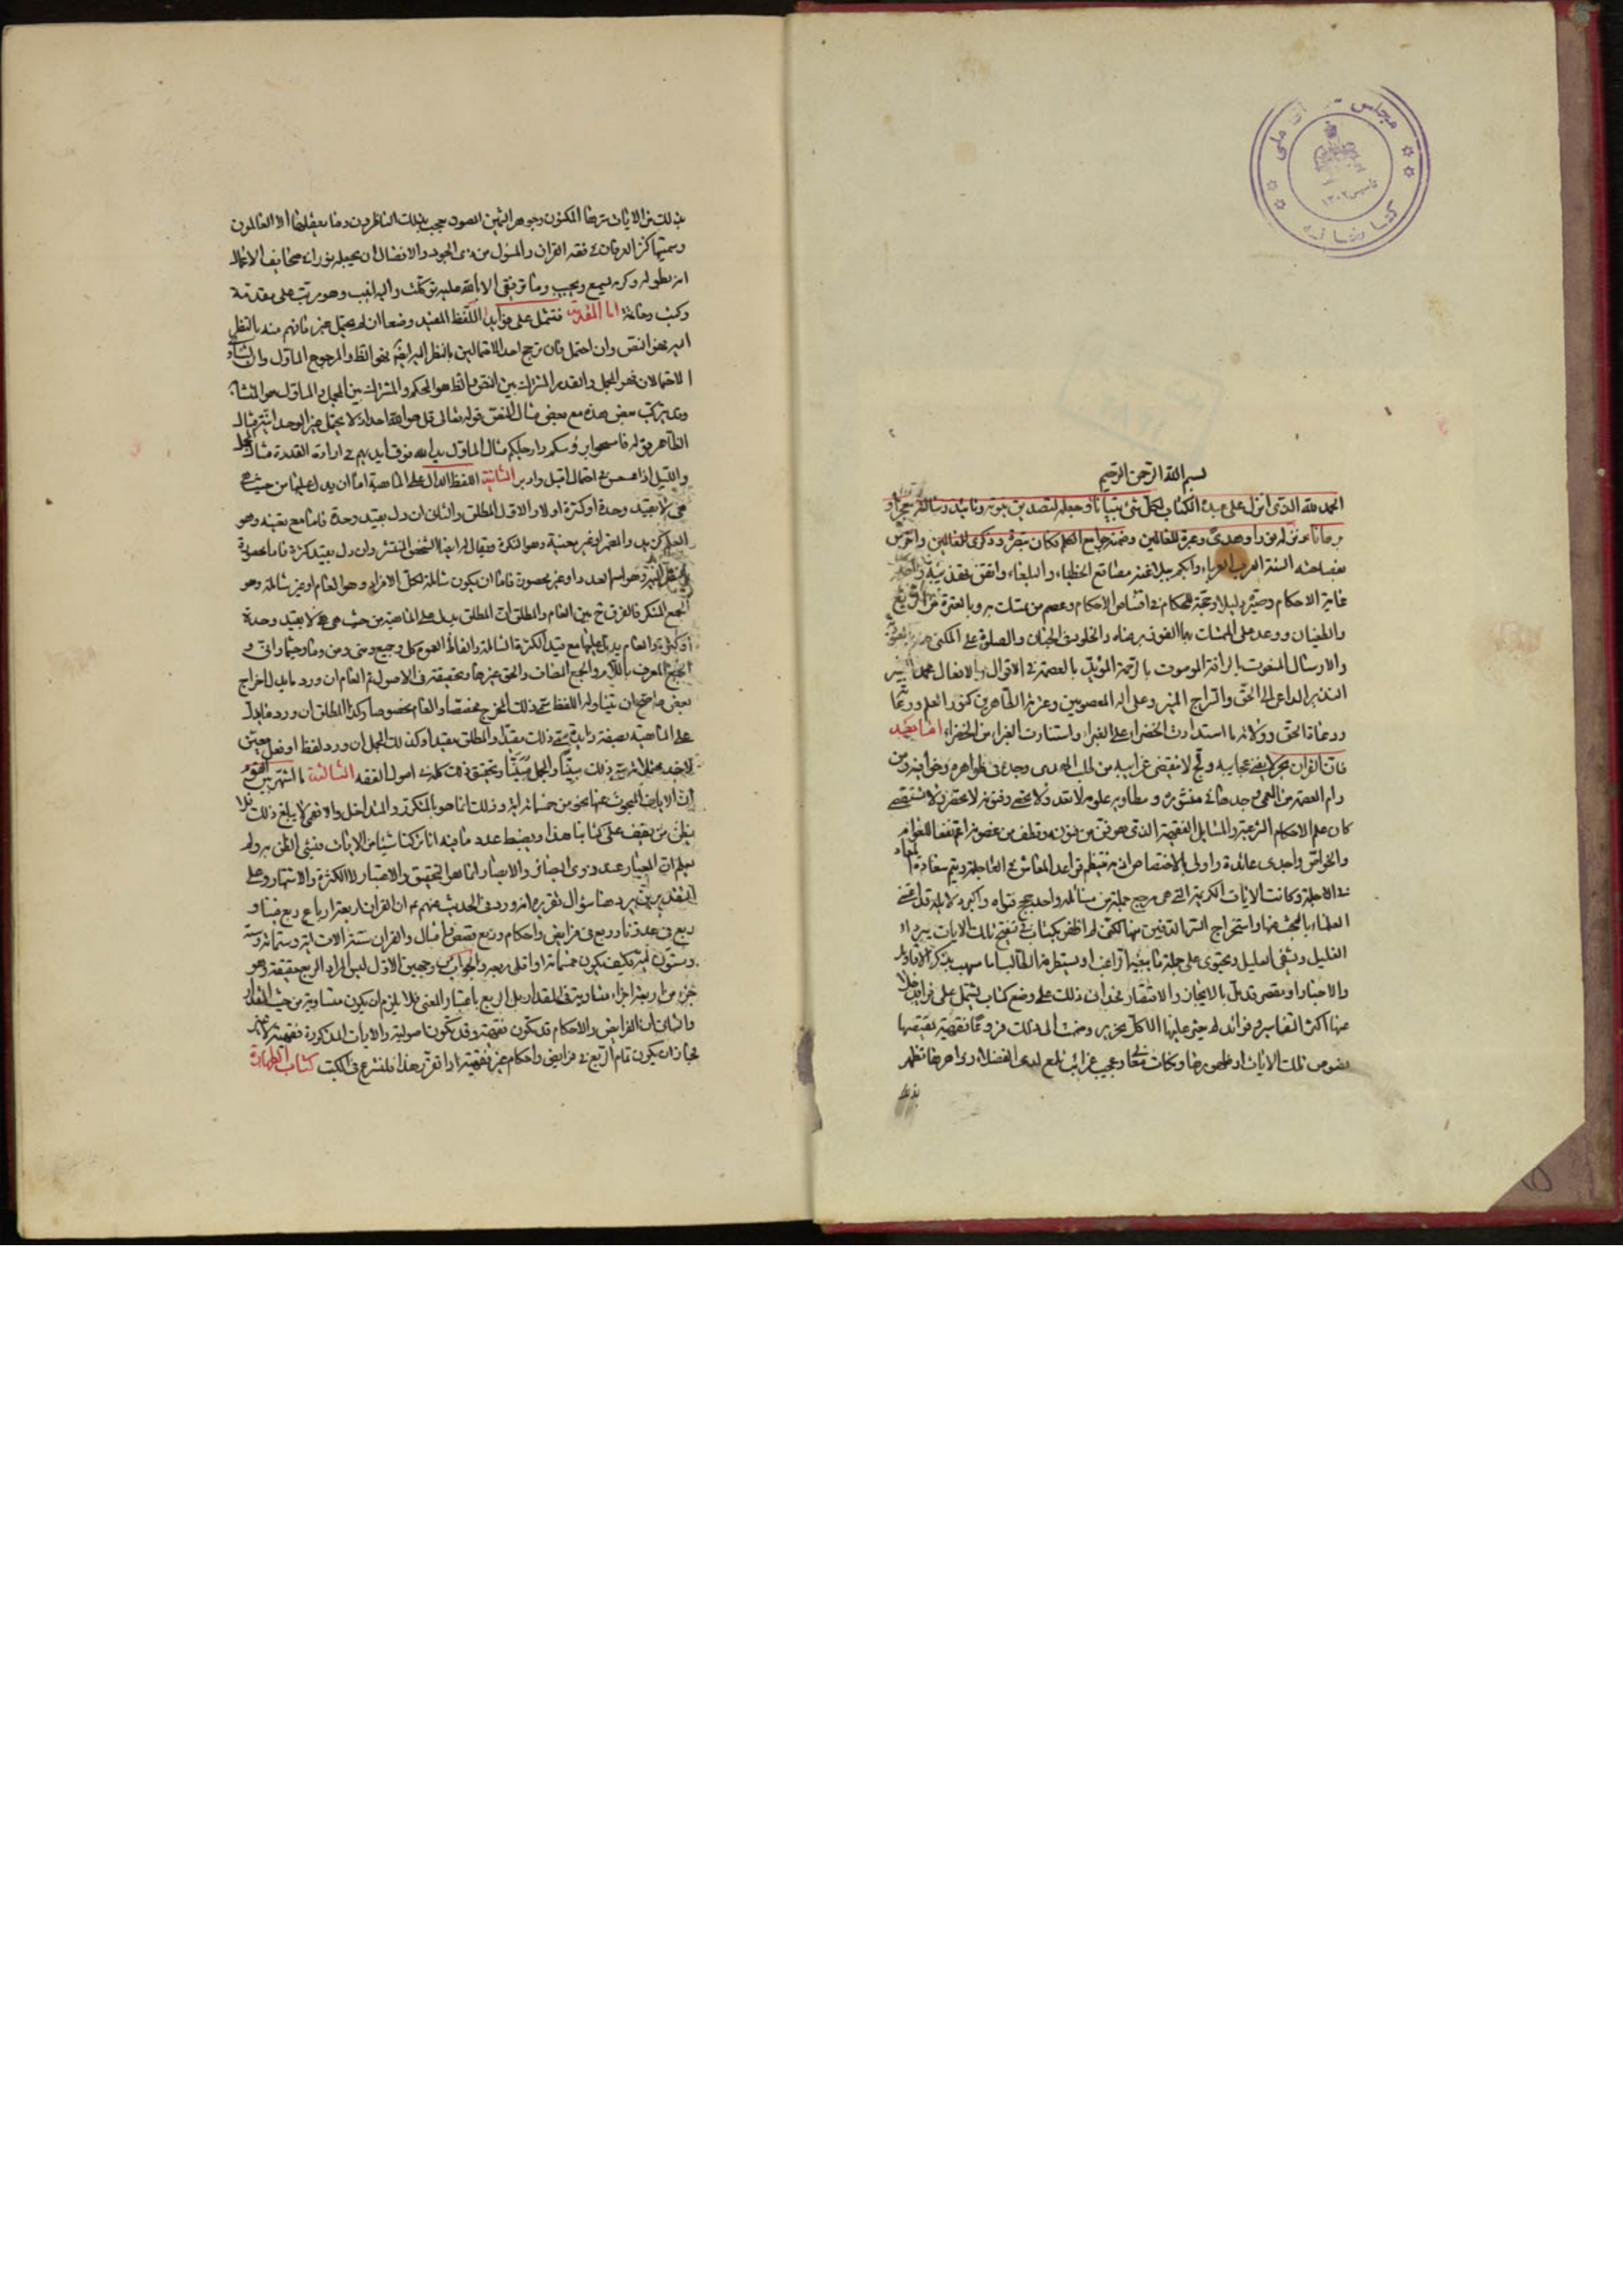 بسم الله الرحمن الرحيم
الحمد لله الذى انزل على عبده الكتاب لكل شئ تبيانا وجعله لتصديق نبوته وتائيد رسالته معجزا و
برهانا ونزله نورا وهدى وعبرة للعالمين وضمنه جوامع الكلم فكان تبصرة وذكرى للعالمين واخرس
بفصاحته السنة العرب العرباء وابكم ببلاغته مصاقع الخطباء والبلغاء واتقن
غاية الاحكام وصيره دليلا وحجة للحكام فى اقتناص الاحكام وعصم من تمسك به وبالعترة من الزيغ
والطغيان ووعد على التمسك بهما الفوز برضاه والخلود فى الجنان والصلوة على المكنى
والارسال المنعوت بالرافة الموسوت بالرحمة المؤيد بالعصمة فى الاقوال والافعال محمد البشير
النذير الداعى الى الحق والسراج المنير وعلى اله المعصومين وعزته الطاهرين كنوز العلم
ودعاة الحق وولاته ما استدارت الخضراء على الغبراء واستنارت الغبراء من الخضراء اما بعد
فان القران بحر لا يفنى عجايبه ولج لا تنقضى غرايبه من طلب الهدى وجده فى ظواهره وخوافيه ومن
رام العصمة من العمى وجدها فى منشوره ومطاويه علومه لا تعد ولا تحصى وفنونه لا تحصر ولا تستقصى
كان علم الاحكام الشرعية والمسايل الفقهية الذى هو فن من فنونه وقطف من غصونه اعم نفعا للعوام
والخواص واجدى عائدة واولى بالاختصاص اذ به ينتظم قواعد المعاش فى العاجلة ويتم سعادة المعاد
فى الاجلة وكانت الايات الكريمة التى هى مرجع جملة من مسائله واحد حجج فتواه واكبر دلايله قد اعتنى
العلماء بالبحث عنها واستخراج السر الدفين منها لكنى لم اظفر بكتاب فى تنقيح تلك الايات يبرد
الغليل ويشفى العليل ويحتوى على جملة ما يبغيه الراغب او يستطرفه الطالب اما مسهب بذكر الاقاويل
والاخبار او مقصر قد بل بالايجاز والاختصار فحدانى ذلك على وضع كتاب يشتمل على فوائد خلا
عنها اكثر التفاسير وفوائد لم يعثر عليها الا كل نحرير وضمت الى ذلك فروعا فقهية يقتضيها
نصوص تلك الايات او ظهورها ونكات معان وعجيب غرائب تلمع لدى الفضلاء زواهرها تظهر
بذلك
بذلك من الايات سرها المكنون وجوهرها الثمين المصون يعجب بذلك الناظرون وما يعقلها الا العالمون
وسميتها كنز العرفان فى فقه القران والمسؤل من ذى الجود والافضال ان يجعله نورا فى صحايف الاعمال
انه بطوله وكرمه يسمع ويجيب وما توفيقى الا بالله عليه توكلت واليه انيب وهو مرتب على مقدمة
وكتب وخاتمة اما المقدمة فتشتمل على فوائد اللفظ المفيد وضعا ان لم يحتمل غير ما فهم منه بالنظر
اليه فهو النص وان احتمل فان ترجح احد الاحتمالين بالنظر اليه ايضا فهو الظاهر والمرجوح الماول وان تساوى
الاحتمالان فهو المجمل والقدر المشترك بين النص والظاهر هو المحكم والمشترك بين المجمل والماول هو المتشابه
وقد يتركب بعض هذه مع بعض مثال النص قوله تعالى قل هو الله احد اذ لا يحتمل غير الوحدانية مثال
الظاهر قوله فامسحوا برؤسكم وارجلكم مثال الماول يد الله فوق ايديهم فى ارادة القدرة مثال المجمل
والليل اذا عسعس فى احتمال اقبل وادبر الثانية اللفظ الدال على الماهية اما ان يدل عليها من حيث هى
هى لا بقيد وحدة او كثرة اولا والاول المطلق والثانى ان دل بقيد وحدة فاما معينة وهو
العلم كزيد والمضمر او غير معينة وهو النكرة ويقال له ايضا الشخص المنتشر وان دل بقيد كثرة فاما محصورة
وهو اسم العدد او غير محصورة فاما ان يكون شاملة لكل الافراد وهو العام او غير شاملة وهو
الجمع المنكر فالفرق ح بين العام والمطلق ان المطلق يدل على الماهية من حيث هى هى لا بقيد وحدة
او كثرة والعام يدل عليها مع قيد الكثرة الشاملة والفاظ العموم كل وجميع ومتى ومن وما وحيثما وانى و
الجمع المعرف باللام والجمع المضاف والحق غيرها وتحقيقه فى الاصول ثم العام ان ورد ما يدل اخراج
بعض ما صح ان يتناوله اللفظ سمى ذلك المخرج مخصصا والعام مخصوصا وكذا المطلق ان ورد ما يدل
على الماهية بصفة زايدة سمى ذلك مقيدا والمطلق مقيدا وكذلك المجمل ان ورد لفظ او فعل معين
لاحد محتملاته سمى ذلك مبينا والمجمل مبينا وتحقيق ذلك كله فى اصول الفقه الثالثة ما اشتهر بين القوم
ان الايات المبحوث عنها نحو من خمسمائة اية وذلك انما هو بالمتكرر والمتداخل والا فهى لا يبلغ ذلك فلا
يظن من يقف على كتابنا هذا ويضبط عدد ما فيه انا تركنا شيئا من الايات فيسئ الظن به ولم
يعلم ان المعيار عند ذوى البصائر والابصار انما هو التحقيق والاعتبار لا الكثرة والاشتهار وعلى
التقديرين يرد هنا سؤال تقريره انه ورد فى الحديث عنهم ع ان القران اربعة ارباع ربع فينا و
ربع فى عدونا وربع فى فرايض واحكام وربع قصص وامثال والقران ستة الاف اية وستمائة وستة
وستون اية فكيف يكون خمسمائة او اقل ربعه والجواب من وجهين الاول ليس المراد الربع حقيقة وهو
جزء من اربعة اجزاء متساوية فى المقدار بل الربع باعتبار المعنى فلا يلزم ان يكون متساوية من حيث المقدار
والثانى ان الفرايض والاحكام قد يكون فقهية وقد يكون اصولية والايات المذكورة فقهية لا غير
فجاز ان يكون تمام الربع فى فرايض واحكام غير فقهية اذا تقرر هذا فلنشرع فى الكتب كتاب الطهارة
مجلس ملى
كتابخانه